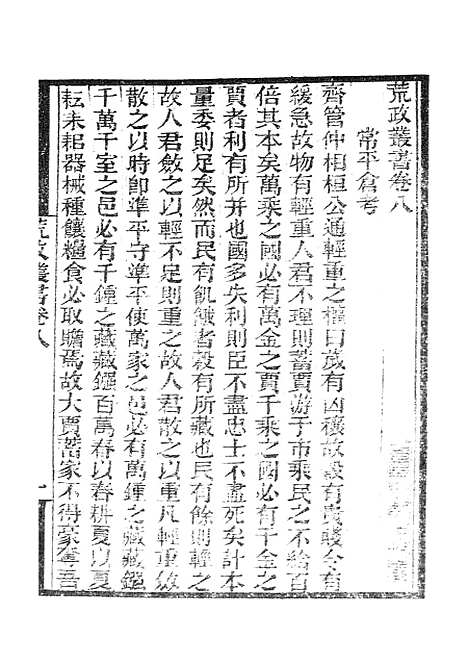 荒政叢書卷八
常平倉考
齊管仲相桓公通輕重之權曰歲有凶穰故穀有貴賤令有
緩急故物有輕重人君不理則蓄賈游于市乘民之不給百
倍其本矣萬乘之國必有萬金之賈千乘之國必有千金之
賈者利有所并也國多失利則臣不盡忠士不盡死矣計本
量委則足矣然而民有飢餓者穀有所藏也民有餘則輕之
故人君斂之以輕不足則重之故人君散之以重凡輕重斂
散之以時即準平守準平使萬家之邑必有萬鍾之藏藏鏹
千萬千室之邑必有千鍾之藏藏鏹百萬春以春耕夏以夏
耘耒耜器械種饟糧食必取贍焉故大賈蓄家不得豪奪吾
荒政叢書卷八
一